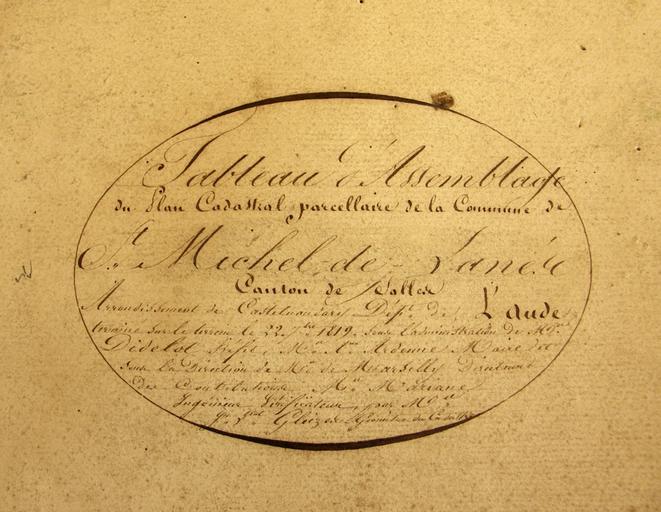 Tableau d'Assemblage
du Plan Cadastral parcellaire de la Commune de
St. Michel-de-Lanès
Canton de Salles
Arrondissement de Castelnaudary Dépt. de L'aude
terminé sur le terrain le 22 1819, sous l'administration de Mr.
Didelot Préfet, Mr. Ardenne Maire et
sous la Direction de Mr. de Marsilly Directeur
des Contributions, Mr.
Ingénieur Vérificateur, par Mr.
Gleizes Géomètre du Cadastre